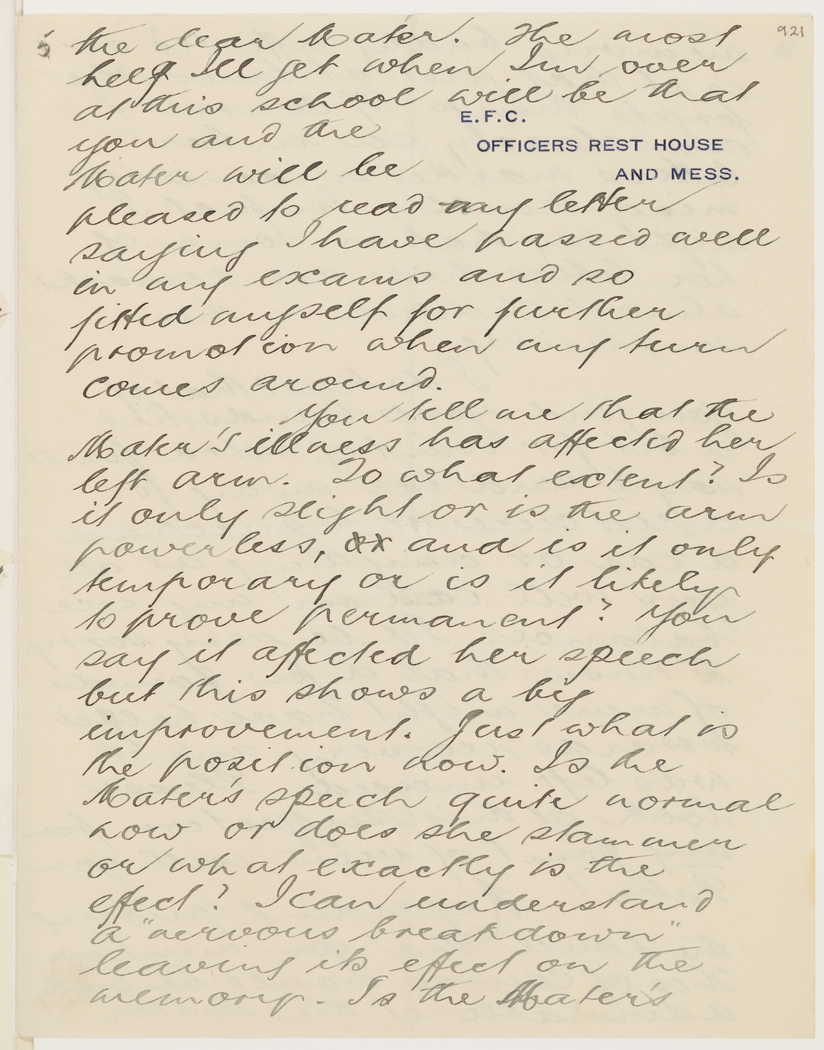 5
921
the dear Mater. The most
help I'll get when I'm over
at this school will be that
E.F.C.
OFFICERS REST HOUSE
AND MESS.
you and the
Mater will be
pleased to read my letter
saying I have passed well
in my exams and so
fitted myself for further
promotion when my turn
comes around.
You tell me that the
Mater's illness has affected her
left arm. To what extent? Is
it only slight or is the arm
powerless, and is it only
temporary or is it likely
to prove permanent? You
say it affected her speech
but this shows a big
improvement. Just what is
the position now. Is the
Mater's speech quite normal
now or does she stammer
or what exactly is the
effect? I can understand
a "nervous breakdown"
leaving its effect on the
memory. Is the Mater's